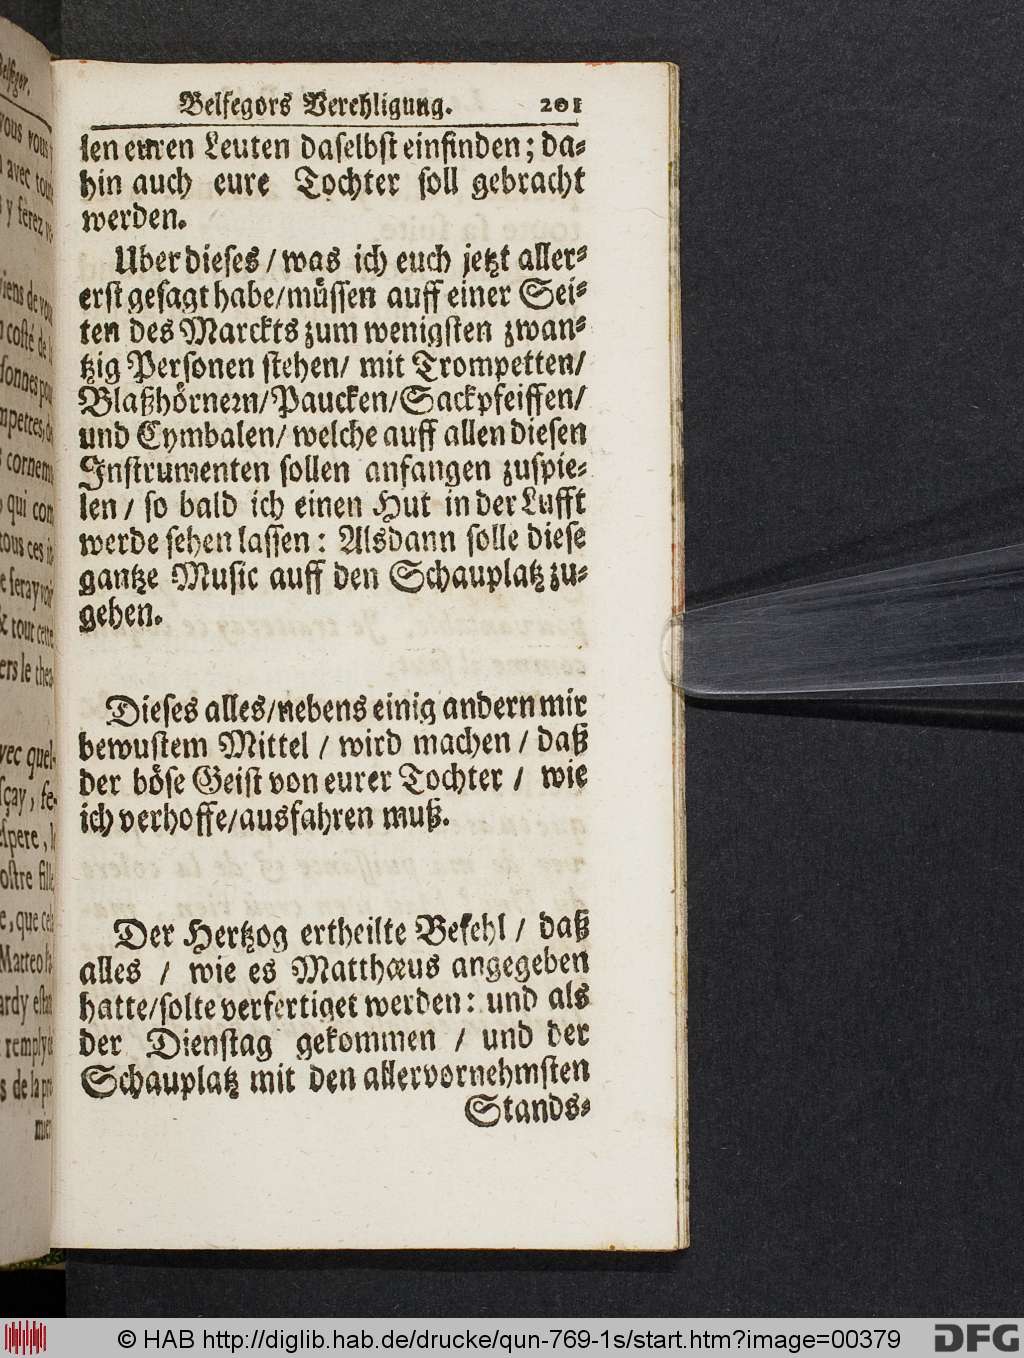 Belfegors Verehligung. 201
len euren Leuten daselbst einfinden; da⸗
hin auch eure Tochter soll gebracht
werden.
Uber dieses / was ich euch jetzt aller⸗
erst gesagt habe/müssen auff einer Sei⸗
ten des Marckts zum wenigsten zwan⸗
tzig Personen stehen/ mit Trompetten/
Blaßhörnern/Paucken/Sackpfeiffen/
und Cymbalen/ welche auff allen diesen
Instrumenten sollen anfangen zuspie⸗
len / so bald ich einen Hut in der Lufft
werde sehen lassen: Alsdann solle diese
gantze Music auff den Schauplatz zu⸗
gehen.
Dieses alles/nebens einig andern mir
bewustem Mittel / wird machen / daß
der böse Geist von eurer Tochter / wie
ich verhoffe/ausfahren muß.
Der Hertzog ertheilte Befehl / daß
alles / wie es Matthæus angegeben
hatte/solte verfertiget werden: und als
der Dienstag gekommen / und der
Schauplatz mit den allervornehmsten
Stands⸗
vous vous
avec tout
y ferez
viens de vou
costé de l
cornem
qui com
tous ces in
e seray voir
& tout cette
ers le thea
vec quel-
sçay, se-
spere, l
ostre fille
e, que cela
Matteo
ardy estan
remply d
s de la pre
mier
© HAB http://diglib.hab.de/drucke/qun-769-1s/start.htm?image=00379
DFG